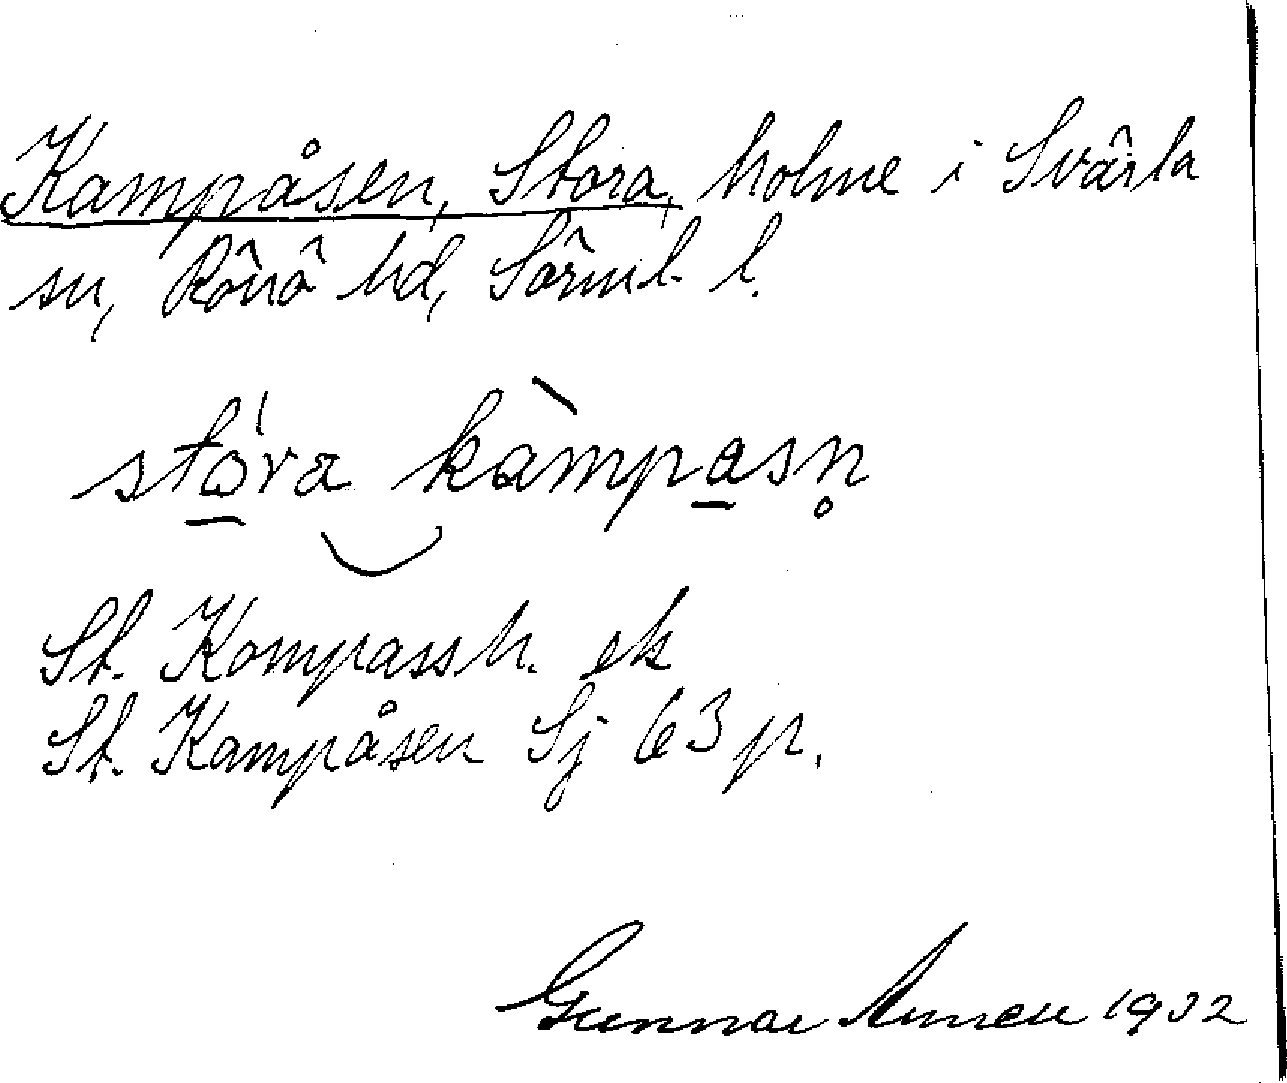 Kampåsen, Stora, holme i Svärta
sn, Rönö hd, Sörml. l.
stóra kàmpasn̥
St. Kompassh. ek
St. Kampåsen Sj 63 p.
Gunnar 1932